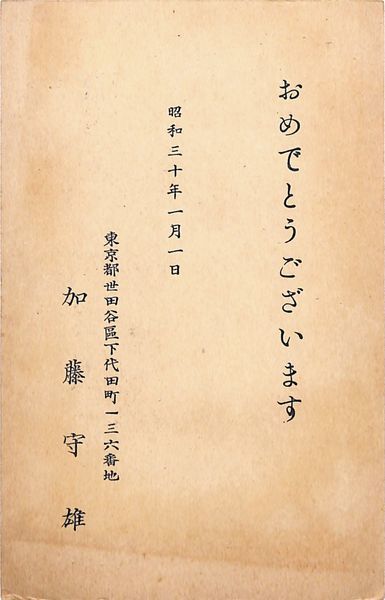 おめでとうございます
昭和三十年一月一日
東京都世田谷區下代田町一三六番地
加藤守雄